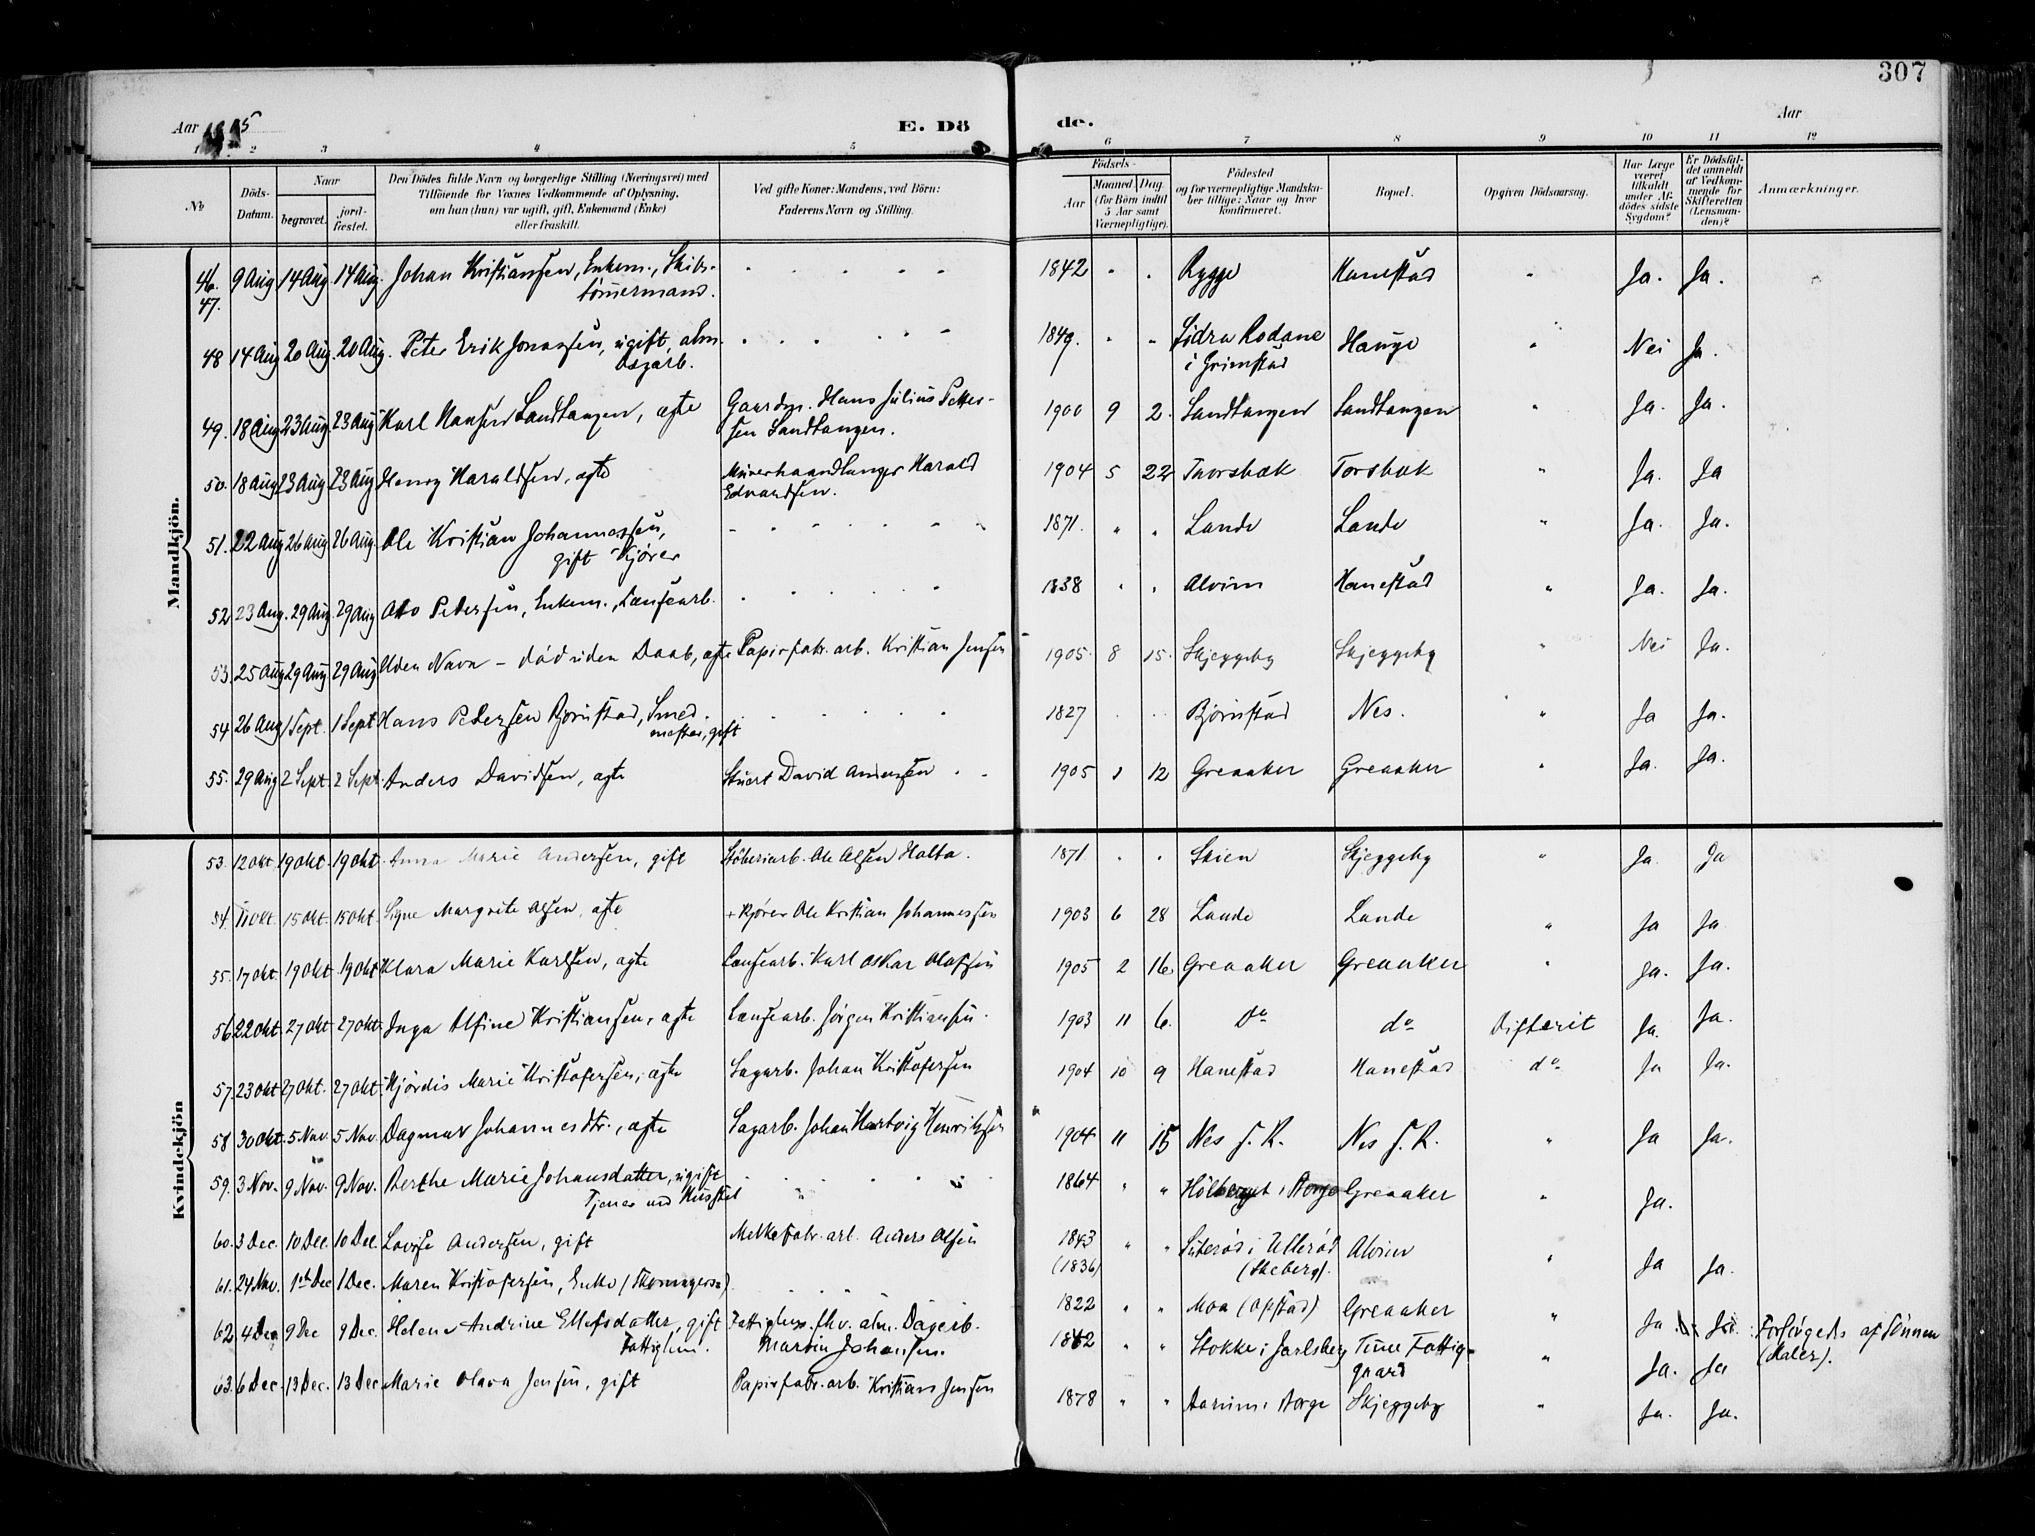 307
Aar 1905
E. Döde.
Aar
1 2 3 4 5 6 7 8 9 10 11 12
No
Döds-Datum.
Naar
begravet.
jord-fæstet.
Den Dödes fulde Navn og borgerlige Stilling (Næringsvei) med
Tilföiende for Voxnes Vedkommende af Oplysning,
om han (hun) var ugift, gift, Enkemand (Enke)
eller fraskilt.
Ved gifte Koner: Mandens, ved Börn:
Faderens Navn og Stilling.
Födsels-
Aar
Maaned Dag
(for Börn indtil
5 Aar samt
Værnepligtige).
Födested
og for værnepligtige Mandskaber tillige: Naar og hvor konfirmeret.
Bopæl.
Opgiven Dödsaarsag.
Har Læge været tilkaldt under Afdödes sidste Sygdom?
Er Dödsfaldet anmeldt af Vedkommende for Skifteretten (Lensmanden)?
Anmærkninger.
Mandkjön.
46. 47. 9 Aug 14 Aug 14 Aug. Johan Kristianssen, Enkem., Skibstømermand. 1842 " " Rygge Hanestad " Ja. Ja.
48 14 Aug 20 Aug. 20 Aug. Peter Erik Jonassen, ugift, alm. Dagarb. 1849. " " Sidra Rodane i Grimstad Hauge " Nei Ja.
49. 18 Aug 23 Aug. 23 Aug Karl Hansen Sandtangen, ægte Gaardm. Hans Julius Pettersen Sandtangen. 1900 9 2. Sandtangen Sandtangen " Ja. Ja.
50. 18 Aug 23 Aug 23 Aug Henry Haraldsen, ægte Murerhaandlanger Harald Edvardsen. 1904 5 22 Torsbæk Torsbæk " Ja. Ja
51. 22 Aug 26 Aug 26 Aug. Ole Kristian Johannessen, gift Kjører 1871. " " Lande Lande " Ja. Ja.
52 23 Aug. 29 Aug 29 Aug Otto Pedersen, Enkem., Lænsearb. 1838 " " Alvim Hanestad " Ja. Ja.
53. 25 Aug 29 Aug 29 Aug Uden Navn - død uden Daab, ægte Papirfabr. arb. Kristian Jensen 1905. 8 15. Skjeggeby Skjeggeby " Nei Ja.
54 26 Aug 1 Sept. 1 Sept Hans Pedersen Bjørnstad, Smedmester, gift 1827 Bjørnstad Nes. " Ja Ja.
55. 29 Aug 2 Sept. 2 Sept. Anders Davidsen, ægte Stuert David Andersen 1905 1 12 Greaaker Greaaker " Ja. Ja.
Kvindekjön
53. 12 Okt. 19 Okt. 19 Okt Anna Marie Andersen, gift Støberiarb. Ole Olsen Holta. 1871 " " Skien Skjeggeby " Ja. Ja
54. 11 Okt. 15 Okt. 15 Okt. Signe Margrete Olsen, ægte + Kjører Ole Kristian Johannessen 1903 6 28 Lande Lande " Ja Ja
55. 17 Okt. 19 Okt. 19 Okt Klara Marie Karlsen, ægte Lænsearb. Karl Oskar Olafsen 1905 2 16 Greaaker Greaaker " Ja. Ja.
56. 22 Okt 27 Okt. 27 Okt. Inga Alfine Kristiansen, ægte Lænsearb. Jørgen Kristiansen. 1903 11 6. do do Difterit Ja. Ja.
57. 23 Okt 27 Okt. 27 Okt. Hjørdis Marie Kristofersen, ægte Sagarb. Johan Kristofersen 1904 10 9 Hanestad Hanestad do Ja Ja.
58 30 Okt. 5 Nov. 5 Nov. Dagmar Johannesdtr., ægte Sagarb. Johan Hartvig Henriksen 1904 11 15 Nes S. R. Nes S. R. " Ja Ja.
59. 3 Nov. 9 Nov. 9 Nov. Berthe Marie Johansdatter, ugift Tjener ved Husstel 1864 " " i Borge Greaaker " Ja.
60. 3 Dec. 10 Dec. 10 Dec. Lovise Andersen, gift Melkefabr. arb. Anders Olsen 1843 (1836) " " i Ullerød (Skeberg). Alvim " Ja Ja.
61. 24 Nov. 1ste Dec 1 Dec. Maren Kristofersen, Enke 1822 " " Moa (Opstad) Greaaker " Ja Ja. Forsørgedes af Sønnen (Maler).
62. 4 Dec 9 Dec 9 Dec. Helene Andrine Ellefsdatter, gift Fattiglem. Fattiglem. fhv. alm. Dagarb. Martin Johansen. 1842 " " Stokke i Jarlsberg Tune Fattiggaard " Ja. Ja
63. 6 Dec. 13 Dec. 13 Dec. Marie Olava Jensen, gift Papirfabr. arb. Kristian Jensen 1878 " " i Borge Skjeggeby " Ja. Ja.